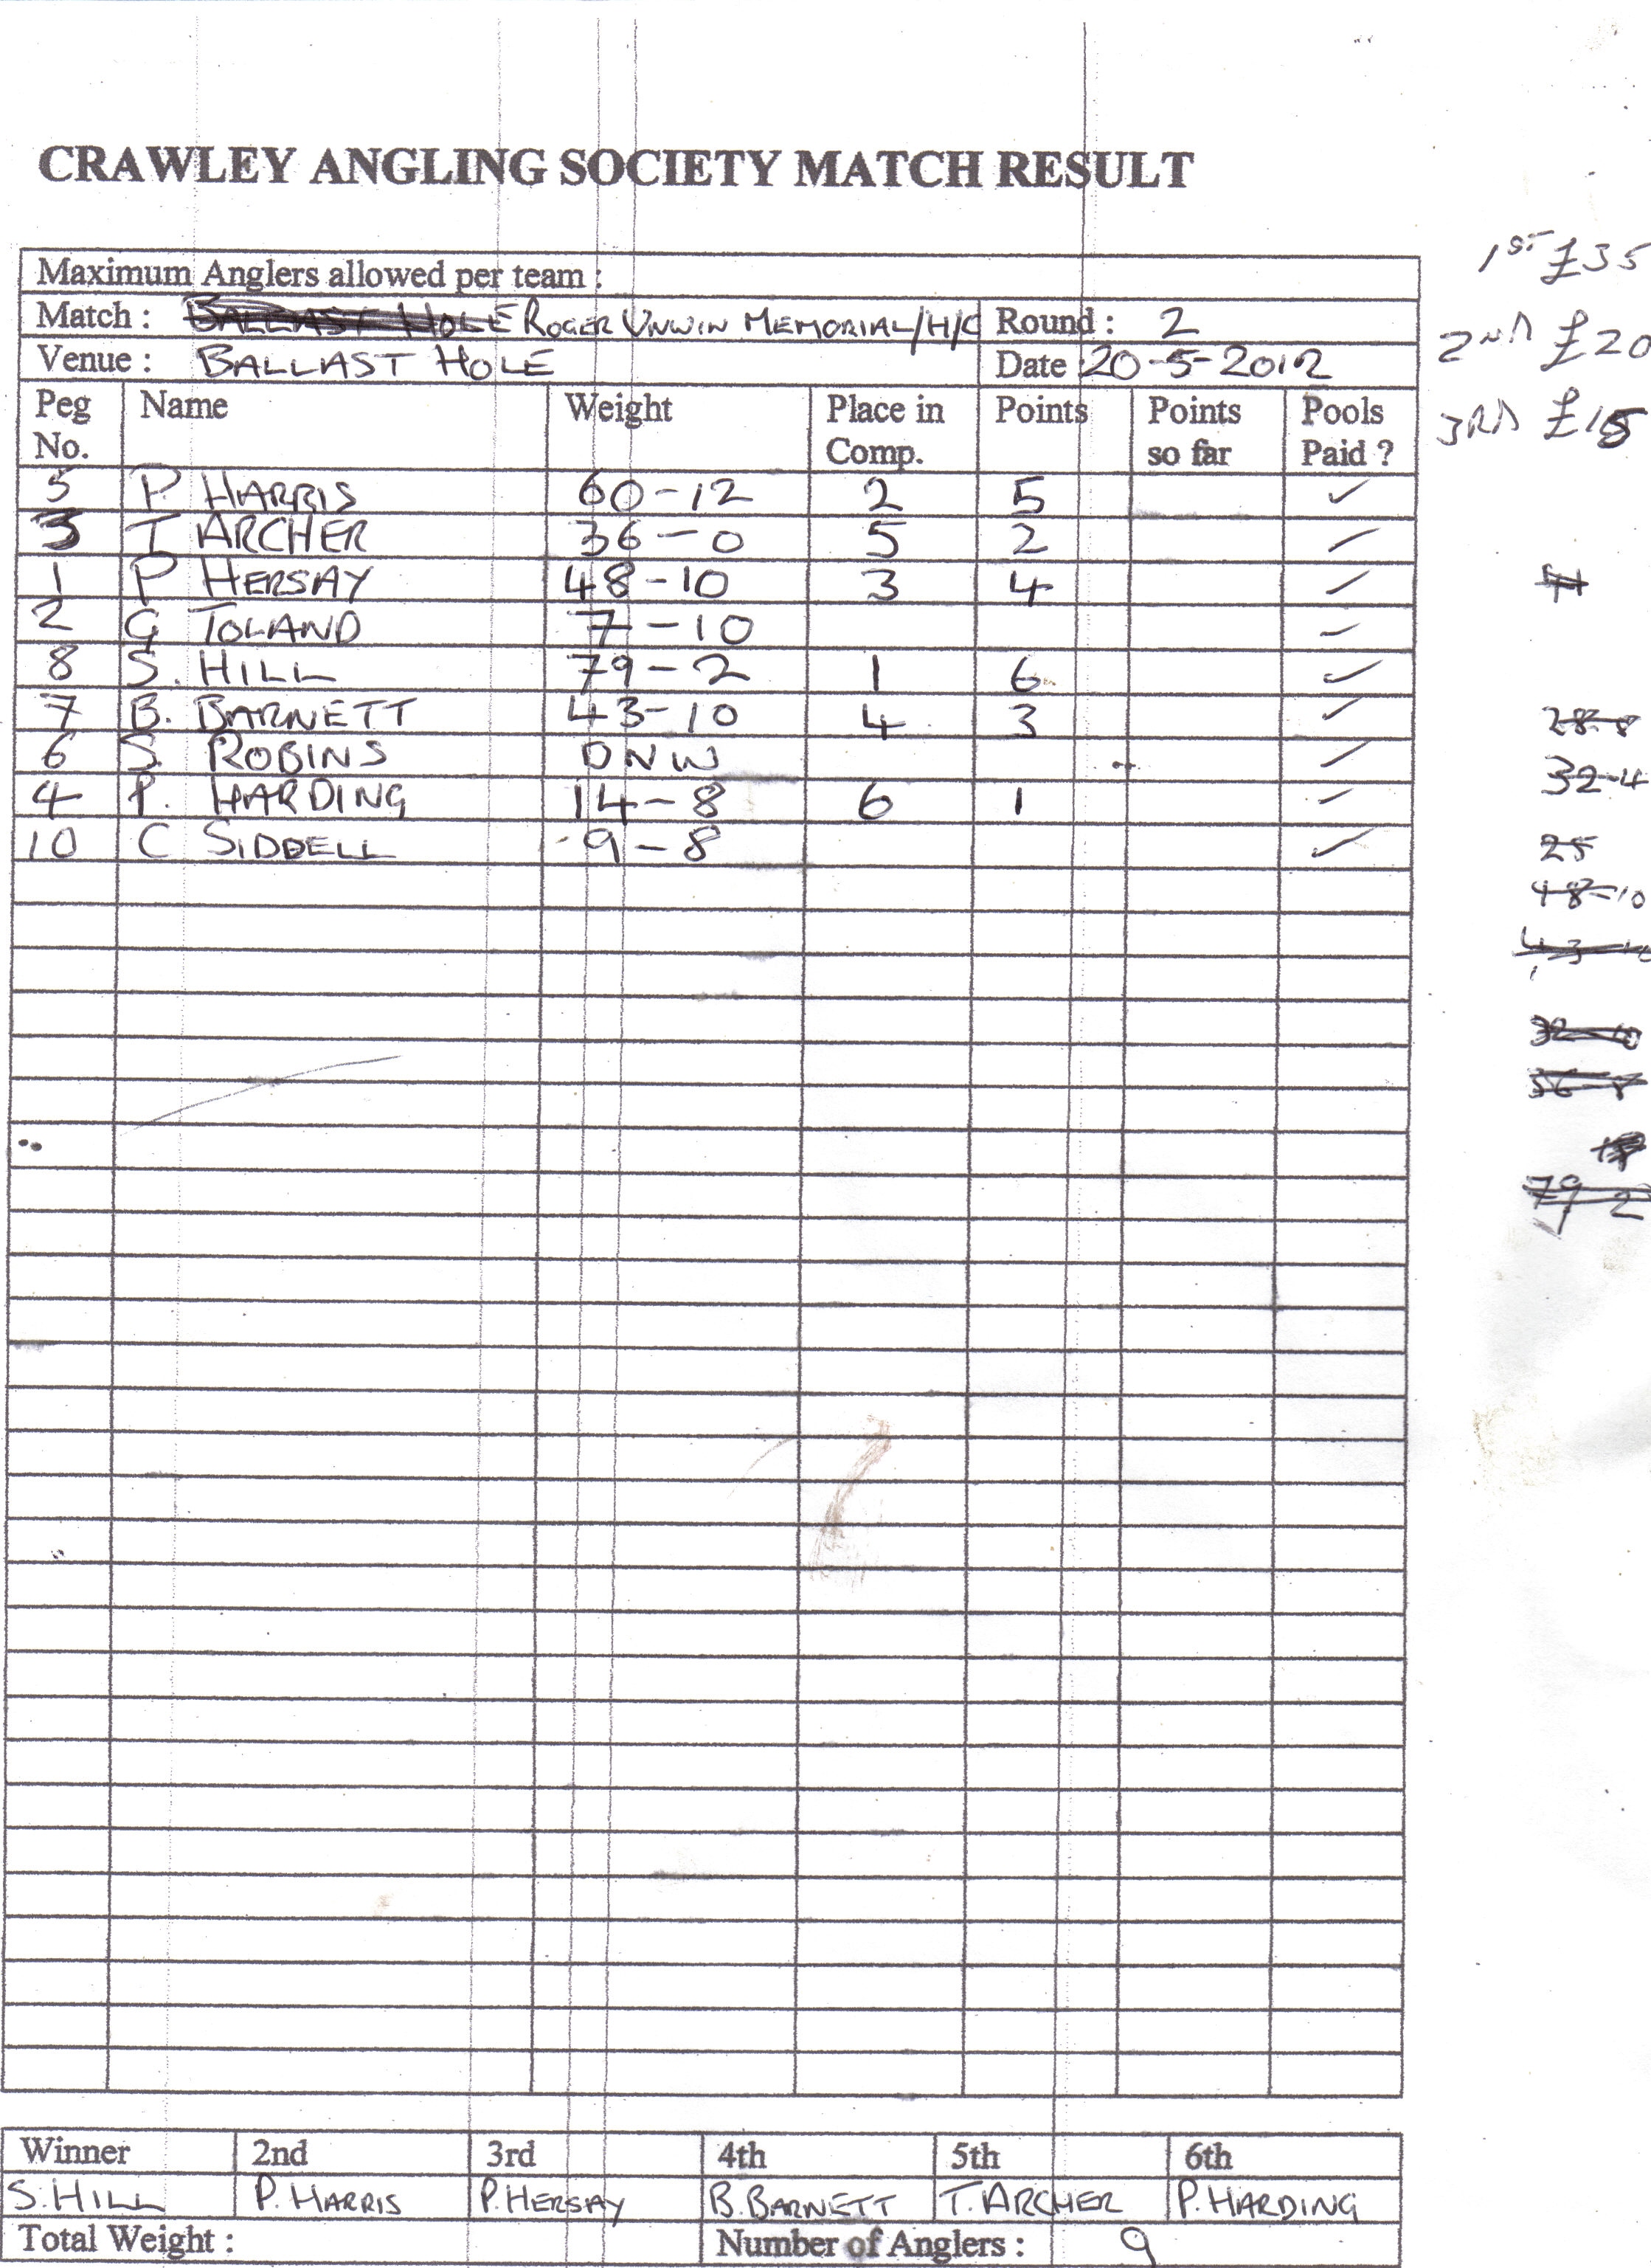 CRAWLEY ANGLING SOCIETY MATCH RESULT
1ST £35
Maximum Anglers allowed per team :
Match : BALLAST HOLE ROGER UNWIN MEMORIAL/H/C Round : 2
2ND £20
Venue : BALLAST HOLE Date 20-5-2012
Peg No. Name Weight Place in Comp. Points Points so far Pools Paid ?
3RD £15
5 P HARRIS 60-12 2 5 ✓
3 T ARCHER 36-0 5 2 ✓
1 P HERSAY 48-10 3 4 ✓
2 G TOLAND 7-10 ✓
8 S. HILL 79-2 1 6 ✓
7 B. BARNETT 43-10 4 3 ✓
28-8
6 S. ROBINS DNW ✓
32-4
4 P. HARDING 14-8 6 1 ✓
10 C SIDDELL 9-8 ✓
25
48-10
43-10
79 2
Winner 2nd 3rd 4th 5th 6th
S. HILL P. HARRIS P. HERSAY B. BARNETT T. ARCHER P. HARDING
Total Weight : Number of Anglers : 9